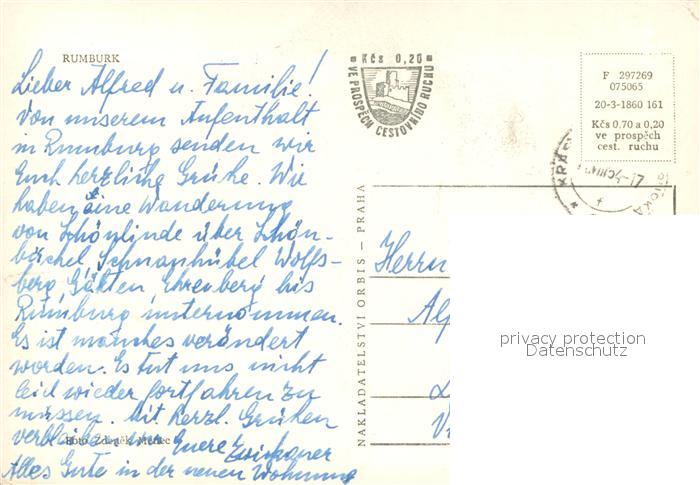 RUMBURK
Lieber Alfred u. Familie!
Von unserem Aufenthalt
in Rumburg senden wir
Euch herzliche Grüße. Wir
haben eine Wanderung
von Schönlinde über Schön-
büchel Schnauhübel Wolfs-
berg Gärten Ehrenberg bis
Rumburg unternommen.
Es ist manches verändert
worden. Es tut uns nicht
leid wieder fortfahren zu
müssen. Mit herzl. Grüßen
verbleiben wir Euere
Foto: Zdeněk
Alles Gute in der neuen Wohnung
Kčs 0,20
VE PROSPĚCH CESTOVNÍHO RUCHU
F 297269
075065
20-3-1860 161
Kčs 0.70 a 0,20
ve prospěch
cest. ruchu
NAKLADATELSTVÍ ORBIS — PRAHA
Herrn
privacy protection
Datenschutz